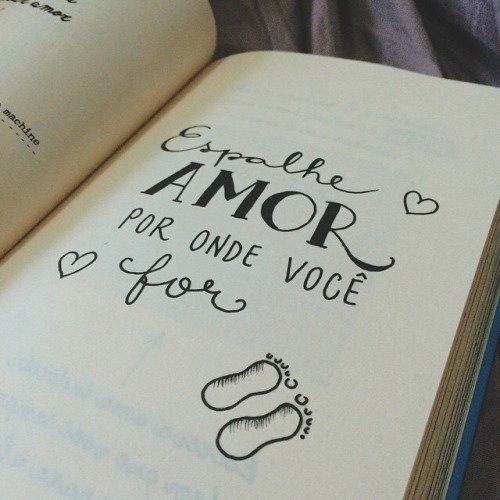 amor
machine
Espalhe
AMOR
POR ONDE VOCÊ
for